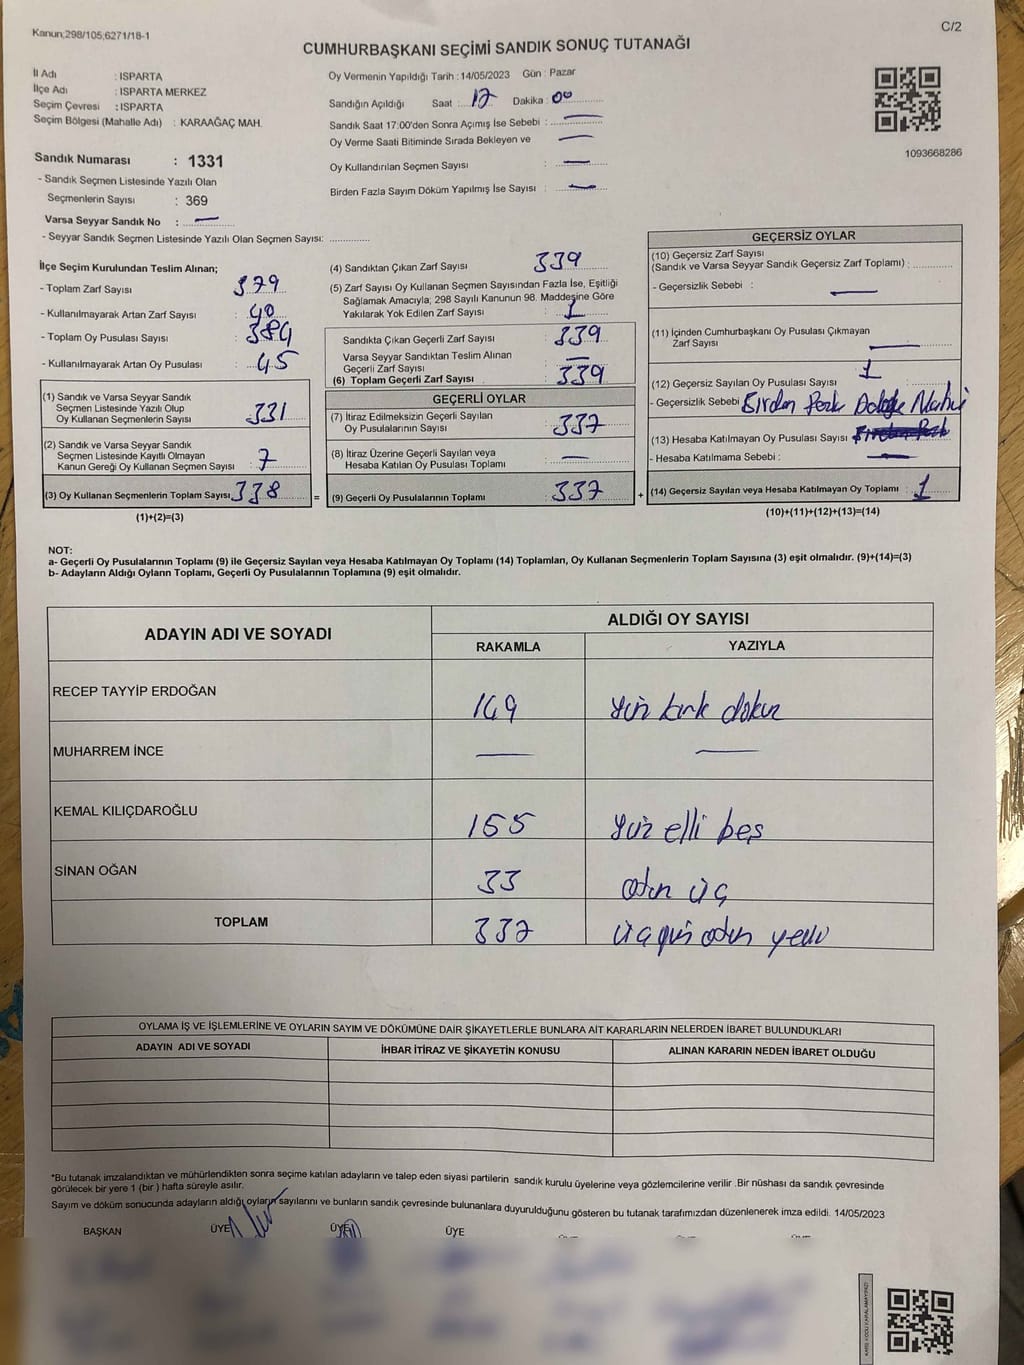 Kanun;298/105;6271/18-1
C/2
CUMHURBAŞKANI SEÇİMİ SANDIK SONUÇ TUTANAĞI
İl Adı : ISPARTA
İlçe Adı : ISPARTA MERKEZ
Seçim Çevresi : ISPARTA
Seçim Bölgesi (Mahalle Adı) : KARAAĞAÇ MAH.
Sandık Numarası : 1331
- Sandık Seçmen Listesinde Yazılı Olan
Seçmenlerin Sayısı : 369
Varsa Seyyar Sandık No : —
- Seyyar Sandık Seçmen Listesinde Yazılı Olan Seçmen Sayısı: ..............
Oy Vermenin Yapıldığı Tarih : 14/05/2023 Gün : Pazar
Sandığın Açıldığı Saat : 17 Dakika : 00
Sandık Saat 17:00'den Sonra Açımış İse Sebebi : —
Oy Verme Saati Bitiminde Sırada Bekleyen ve —
Oy Kullandırılan Seçmen Sayısı : —
Birden Fazla Sayım Döküm Yapılmış İse Sayısı : —
1093668286
İlçe Seçim Kurulundan Teslim Alınan;
- Toplam Zarf Sayısı : 379
- Kullanılmayarak Artan Zarf Sayısı : 40
- Toplam Oy Pusulası Sayısı : 384
- Kullanılmayarak Artan Oy Pusulası : 45
(1) Sandık ve Varsa Seyyar Sandık
Seçmen Listesinde Yazılı Olup
Oy Kullanan Seçmenlerin Sayısı : 331
(2) Sandık ve Varsa Seyyar Sandık
Seçmen Listesinde Kayıtlı Olmayan
Kanun Gereği Oy Kullanan Seçmen Sayısı : 7
(3) Oy Kullanan Seçmenlerin Toplam Sayısı 338 =
(1)+(2)=(3)
(4) Sandıktan Çıkan Zarf Sayısı : 339
(5) Zarf Sayısı Oy Kullanan Seçmen Sayısından Fazla İse, Eşitliği
Sağlamak Amacıyla; 298 Sayılı Kanunun 98. Maddesine Göre
Yakılarak Yok Edilen Zarf Sayısı : 1
Sandıkta Çıkan Geçerli Zarf Sayısı : 339
Varsa Seyyar Sandıktan Teslim Alınan
Geçerli Zarf Sayısı : —
(6) Toplam Geçerli Zarf Sayısı : 339
GEÇERLİ OYLAR
(7) İtiraz Edilmeksizin Geçerli Sayılan
Oy Pusulalarının Sayısı : 337
(8) İtiraz Üzerine Geçerli Sayılan veya
Hesaba Katılan Oy Pusulası Toplamı : —
(9) Geçerli Oy Pusulalarının Toplamı : 337 +
GEÇERSİZ OYLAR
(10) Geçersiz Zarf Sayısı
(Sandık ve Varsa Seyyar Sandık Geçersiz Zarf Toplamı) : ............
- Geçersizlik Sebebi : —
(11) İçinden Cumhurbaşkanı Oy Pusulası Çıkmayan
Zarf Sayısı : —
(12) Geçersiz Sayılan Oy Pusulası Sayısı : 1
- Geçersizlik Sebebi Birden
(13) Hesaba Katılmayan Oy Pusulası Sayısı :
- Hesaba Katılmama Sebebi : —
(14) Geçersiz Sayılan veya Hesaba Katılmayan Oy Toplamı : 1
(10)+(11)+(12)+(13)=(14)
NOT:
a- Geçerli Oy Pusulalarının Toplamı (9) ile Geçersiz Sayılan veya Hesaba Katılmayan Oy Toplamı (14) Toplamları, Oy Kullanan Seçmenlerin Toplam Sayısına (3) eşit olmalıdır. (9)+(14)=(3)
b- Adayların Aldığı Oyların Toplamı, Geçerli Oy Pusulalarının Toplamına (9) eşit olmalıdır.
ADAYIN ADI VE SOYADI ALDIĞI OY SAYISI
RAKAMLA YAZIYLA
RECEP TAYYİP ERDOĞAN 149 yüz kırk dokuz
MUHARREM İNCE — —
KEMAL KILIÇDAROĞLU 155 yüz elli beş
SİNAN OĞAN 33 otuz üç
TOPLAM 337 üçyüz otuz yedi
OYLAMA İŞ VE İŞLEMLERİNE VE OYLARIN SAYIM VE DÖKÜMÜNE DAİR ŞİKAYETLERLE BUNLARA AİT KARARLARIN NELERDEN İBARET BULUNDUKLARI
ADAYIN ADI VE SOYADI İHBAR İTİRAZ VE ŞİKAYETİN KONUSU ALINAN KARARIN NEDEN İBARET OLDUĞU
*Bu tutanak imzalandıktan ve mühürlendikten sonra seçime katılan adayların ve talep eden siyasi partilerin sandık kurulu üyelerine veya gözlemcilerine verilir .Bir nüshası da sandık çevresinde
görülecek bir yere 1 (bir ) hafta süreyle asılır.
Sayım ve döküm sonucunda adayların aldığı oyların sayılarını ve bunların sandık çevresinde bulunanlara duyurulduğunu gösteren bu tutanak tarafımızdan düzenlenerek imza edildi. 14/05/2023
BAŞKAN ÜYE ÜYE ÜYE